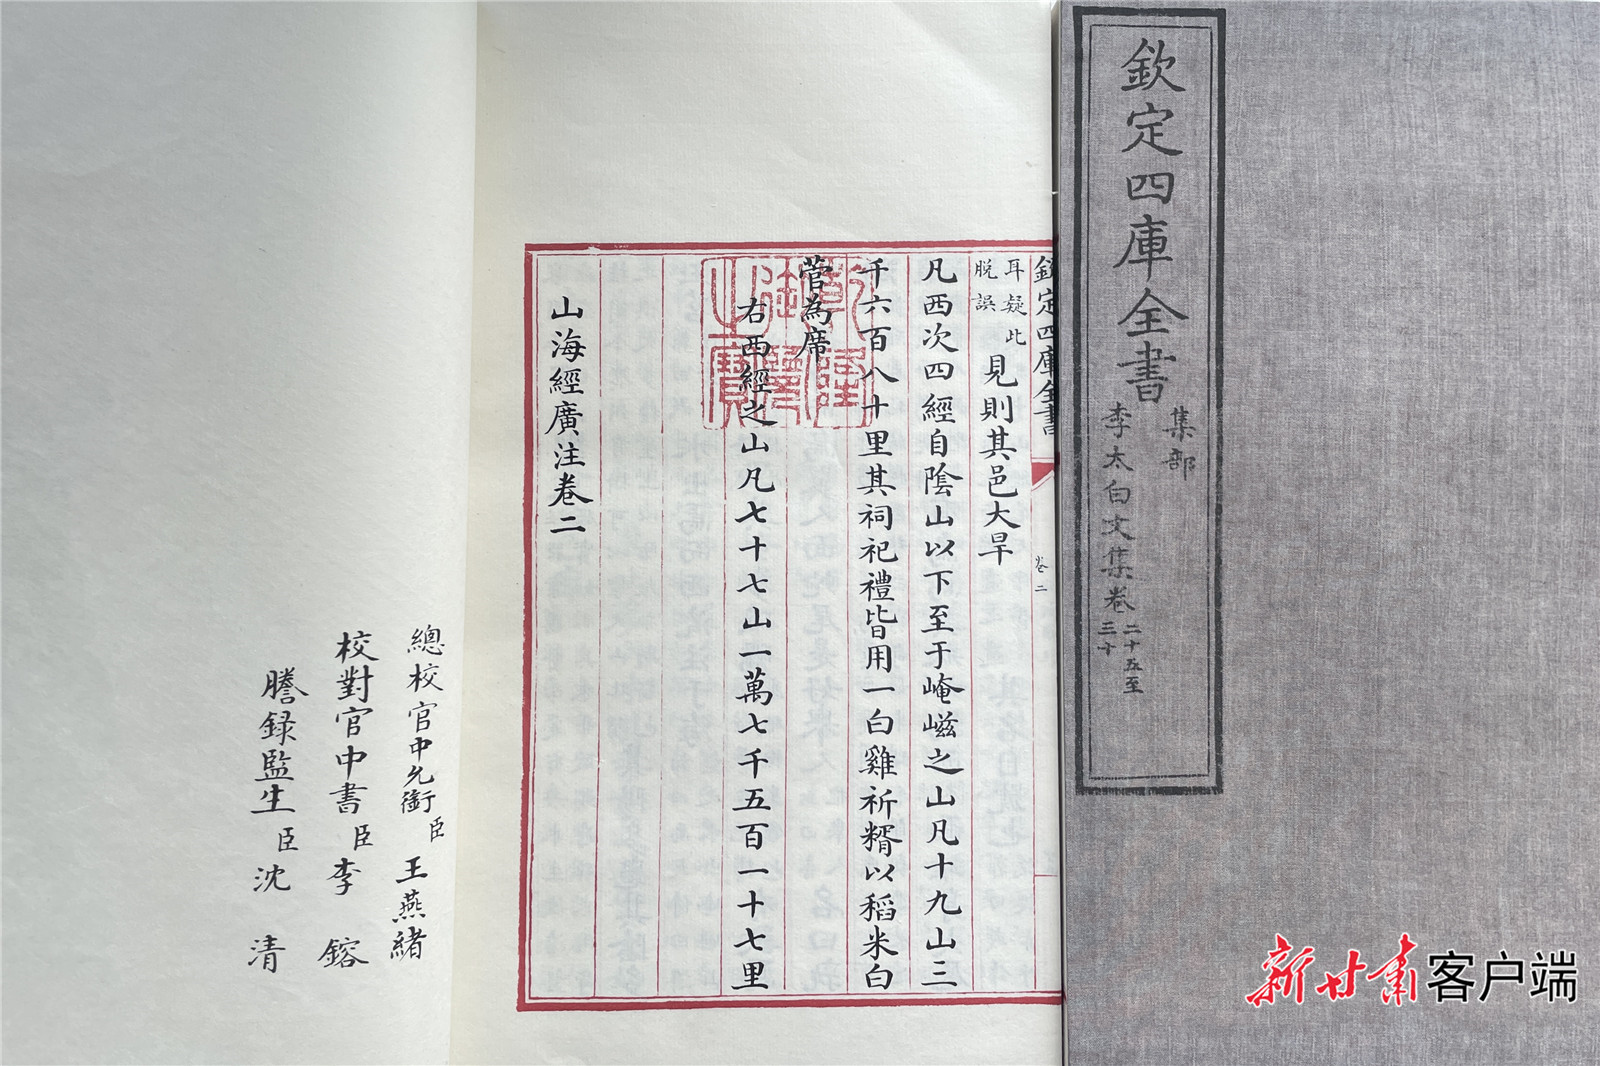 欽定四庫全書
集部
李太白文集卷
二十五至
三十
欽定四庫全書
卷二
耳疑此
脱誤
見則其邑大旱
凡西次四經自陰山以下至于崦嵫之山凡十九山三
千六百八十里其祠祀禮皆用一白雞祈糈以稻米白
菅為席
右西經之山凡七十七山一萬七千五百一十七里
山海經廣注卷二
乾隆御覽之寶
總校官中允銜臣王燕緒
校對官中書臣李鎔
謄録監生臣沈清
新甘肃客户端